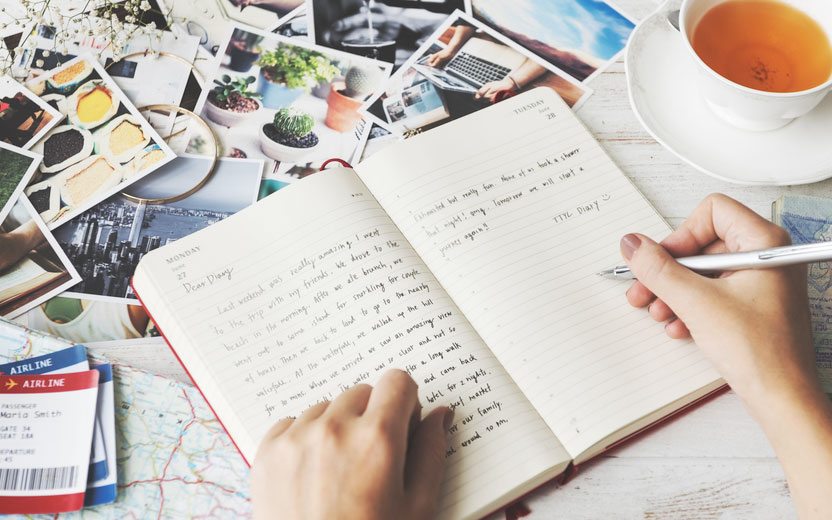 MONDAY
JUNE
27
Dear Diary
Last weekend was really amazing I went
to the trip with my friend. We drove to the
beach in the morning. After we ate brunch, we
went out to some island for snorkling for couple
of hours. Then we back to land to go to the nearby
waterfall. At the waterfall, we walked up the hill
for 30 mins. when we arrived we saw an amazing view
of the waterfall! The water was so clear and not so
after a long walk
and came back
hotel for 2 nights.
market
for our family.
around 10 pm.
TUESDAY
JUNE
28
Exhausted but really fun None of us took a shower
that night! omg. Tomorrow we will start a
journey again!!
TTYL Diary
AIRLINE
AIRLINE
PASSENGER
Maria Smith
GATE 34
SEAT 18A